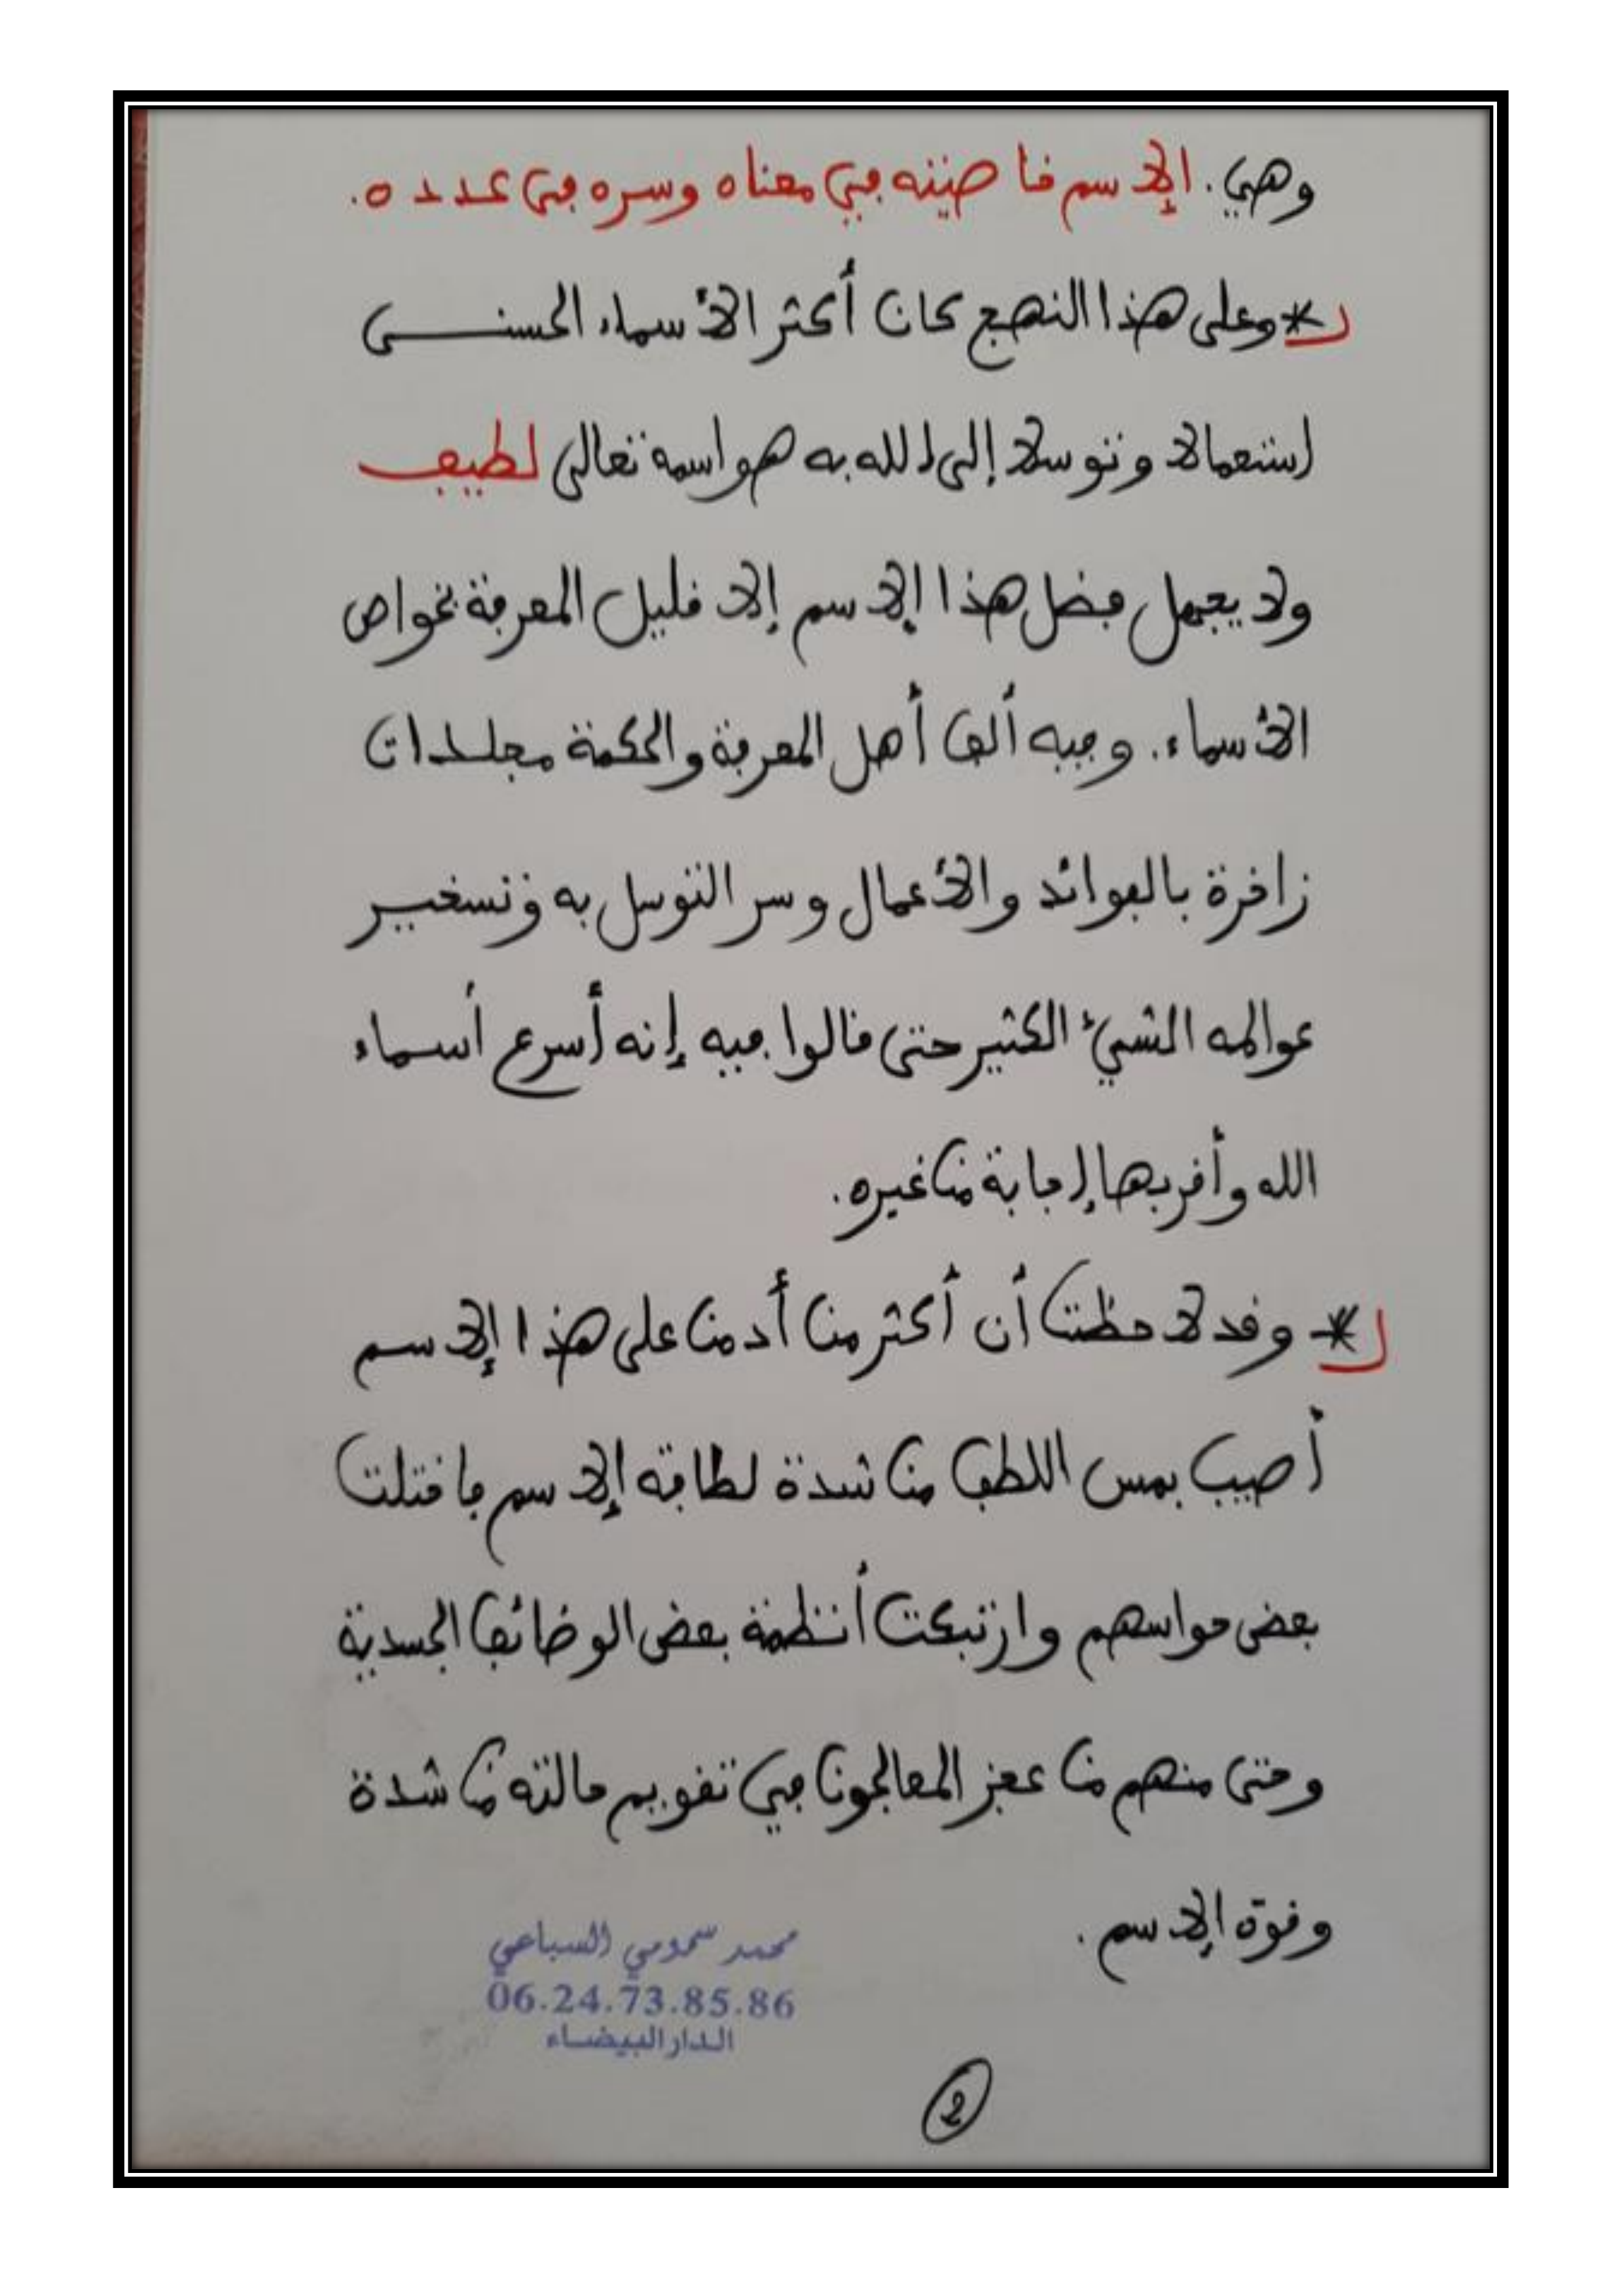 وهي. الإسم خاصيته في معناه وسره في عدده.
* وعلى هذا النهج كان أكثر الأسماء الحسنى
إستعمالا وتوسلا إلى الله به هو اسمه تعالى لطيف
ولا يجهل فضل هذا الإسم إلا قليل المعرفة بخواص
الأسماء. وفيه ألف أهل المعرفة والحكمة مجلدات
زاخرة بالفوائد والأعمال وسر التوسل به وتسخير
عوالمه الشيئ الكثير حتى قالوا فيه إنه أسرع أسماء
الله وأقربها إجابة من غيره.
* وقد لاحظت أن أكثر من أدمن على هذا الإسم
أصيب بمس اللطف من شدة لطافة الإسم فاختلت
بعض حواسهم وارتبكت أنظمة بعض الوضائف الجسدية
وحتى منهم من عجز المعالجون في تقويم حالته من شدة
وقوة الإسم.
محمد سمومي السباعي
06.24.73.85.86
الدار البيضاء
2